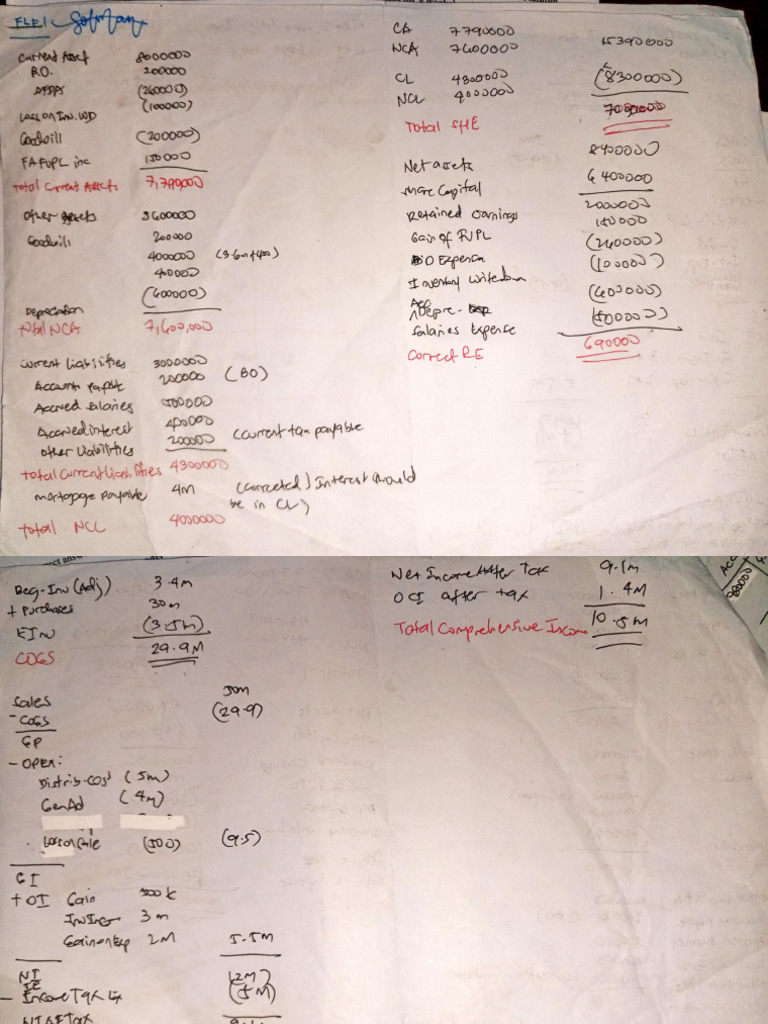 FLE1
Current Asset 8000000
B.O. 200000
(260000)
Loss on Inv. WD (100000)
Goodwill (200000)
FAFVPL inc 150000
Total Current Assets 7,790,000
Other Assets 3600000
Goodwill 200000
4000000 (3.6m+400)
400000
Depreciation (600000)
Total NCA 7,600,000
Current liabilities 3000000
Accounts payable 200000 (BO)
Accrued salaries 500000
Accrued interest 400000
Other Liabilities 200000 (current tax payable
Total Current Liabilities 4300000
mortgage payable 4M (corrected) Interest should be in CL)
Total NCL 4000000
CA 7790000
NCA 7600000 15390000
CL 4300000
NCL 4000000 (8300000)
Total SHE 7090000
Net assets 8400000
Share Capital 6400000
Retained earnings 2000000
Gain of FVPL 150000
BO Expense (260000)
Inventory writedown (100000)
Depre- (600000)
Salaries Expense (500000)
Correct RE 690000
Beg-Inv (Adj) 3.4M
+ Purchases 30m
EInv (3.5M)
COGS 29.9M
Sales 50m
- COGS (29.9)
GP
- OPEX:
Distrib-Cost (5m)
GenAd (4m)
Loss on Sale (500) (9.5)
GI
+ OI Gain 500k
InvInc 3m
Gain on Exp 2M 5.5M
NI
IE (2M)
- Income Tax Ex (5M)
NI AF Tax
Net Income After Tax 9.1m
OCI after tax 1.4M
Total Comprehensive Income 10.5M